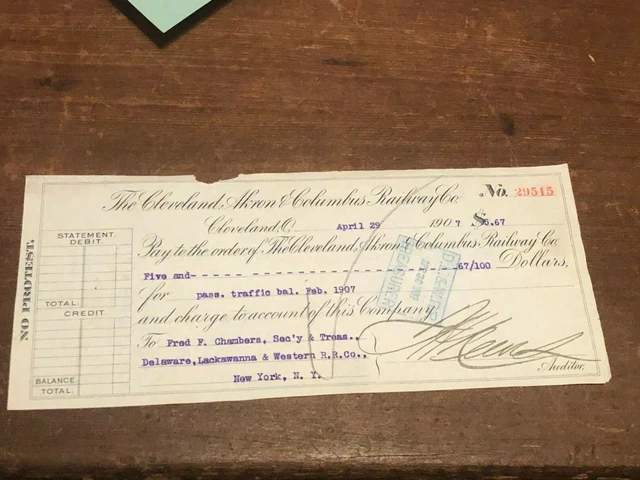 The Cleveland, Akron & Columbus Railway Co. No. 29515
Cleveland, O. April 29 1907 $5.67
Pay to the order of The Cleveland, Akron & Columbus Railway Co.
Five and- - - - - - - - - - - - - - - - - - - - - - 67/100 Dollars,
for pass. traffic bal. Feb. 1907
and charge to account of this Company
To Fred F. Chambers, Sec'y & Treas.,
Delaware, Lackawanna & Western R.R.Co.,
New York, N. Y.
Auditor.
NO PROTEST.
STATEMENT
DEBIT
TOTAL
CREDIT
BALANCE
TOTAL.
TREASURER